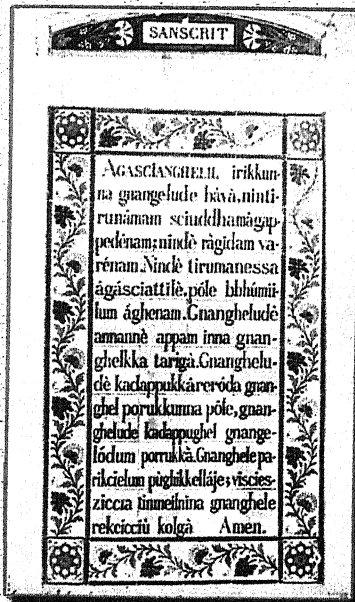 SANSCRIT
AGASCIANGHELIL irikkun-
na gnangelude bàvà, ninti-
runámam sciuddhamàgap-
pedénam; nindè ràgidam va-
rénam. Nindè tirumanessa
ágásciattilè, póle bbhúmii-
lum ághenam. Gnangheludè
annannè appam inna gnan-
ghelkka tarigà. Gnanghelu-
dè kadappukkáreróda gnan-
ghel porukkunna póle, gnan-
ghelude kadappughel gnange-
lódum porrukkà. Gnanghele pa-
rikcielum pùghikkellàje; viscies-
ziccia tinmeilnina gnanghele
rekcicciù kolgà Amen.